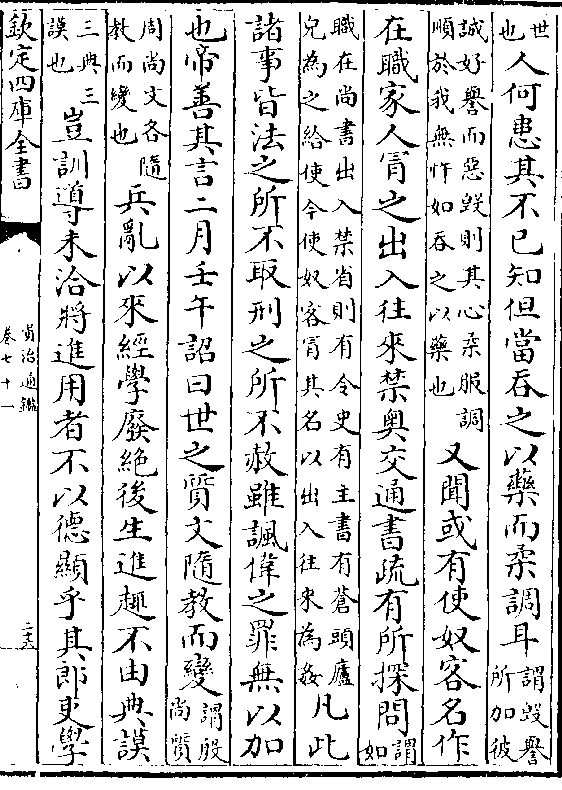 世也人何患其不已知但當吞之以藥而柔調耳謂毀譽所加彼
誠好譽而惡毀則其心柔服調順於我無忤如吞之以藥也又聞或有使奴客名作
在職家人冐之出入往來禁奥交通書疏有所探問謂如
職在尚書出入禁省則有令史有主書有蒼頭廬兒為之給使今使奴客冐其名以出入往來為姦凡此
諸事皆法之所不取刑之所不赦雖諷偉之罪無以加
也帝善其言二月壬午詔曰世之質文隨教而變謂殷尚質
周尚文各隨教而變也兵亂以來經學廢絶後生進趣不由典謨
三典三謨也豈訓導未洽將進用者不以德顯乎其郎吏學
欽定四庫全書
資治通鑑
卷七十一